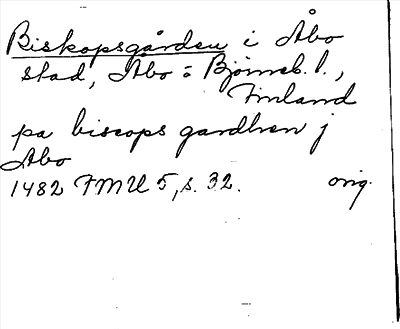 Biskopsgården i Åbo
stad, Åbo = Björneb. l.,
Finland
pa biscops gardhen j
Abo
1482 FMU 5, s. 32. orig.